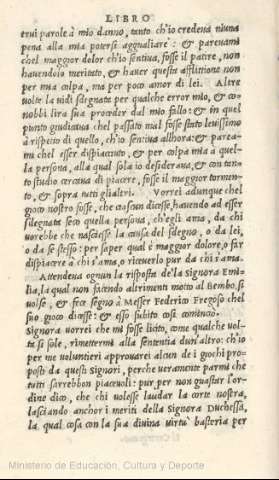 LIBRO
erui parole à mio danno, tanto ch'io credeua niuna
pena alla mia potersi aggualiare : & pareuami
chel maggior dolor ch'io sentiua, fosse il patire, non
hauendolo meritato, & hauer questa afflittione non
per mia colpa, ma per poco amor di lei. Altre
volte la uidi sdegnata per qualche error mio, & co-
nobbi lira sua proceder dal mio fallo: & in quel
punto giudicaua chel passato mal fosse stato leuissimo
à rispetto di quello, ch'io sentiua allhora: & parea-
mi chel esser dispiacciuto, & per colpa mia à quel-
la persona, alla qual sola io desideraua, & con tan-
to studio cercaua di piacere, fosse il maggior tormen-
to, & sopra tutti gli altri. Vorrei adunque chel
gioco nostro fosse, che ciascun dicesse, hauendo ad esser
sdegnata seco quella persona, ch'egli ama, da chi
uorebbe che nascesse la causa del sdegno, o da lei,
o da se stesso: per saper qual è maggior dolore, o far
dispiacere à chi s'ama, o riceuerlo pur da chi s'ama.
Attendeua ognun la risposta de la Signora Emi-
lia, la qual non facendo altrimenti motto al Bembo, si
uolse, & fece segno à Messer Federico Fregoso chel
suo gioco dicesse: & esso subito così cominciò.
Signora uorrei che mi fosse licito, come qualche vol-
te si sole, rimettermi alla sententia dun'altro: ch'io
per me voluntieri approuarei alcun de i giochi pro-
posti da questi signori, perche veramente parmi che
tutti sarrebbon piaceuoli: pur per non guastar l'or-
dine dico, che chi volesse laudar la corte nostra,
lasciando anchor i meriti della Signora Duchessa,
la qual cosa con la sua diuina virtu' basteria per
Ministerio de Educación, Cultura y Deporte